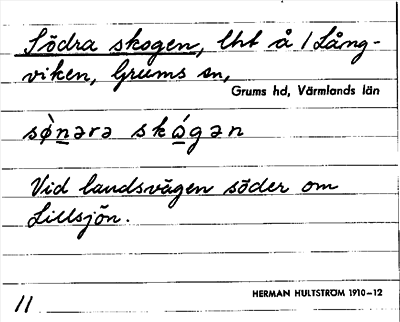 Södra skogen, lht å 1 Lång-
viken, Grums sn,
Grums hd, Värmlands län
sø̀nərə skógən
Vid landsvägen söder om
Lillsjön.
HERMAN HULTSTRÖM 1910–12
11